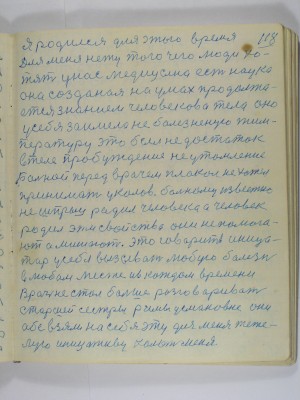 118
Я родился для этого время
Для меня нету того чего люди хо-
тят у нас медицина есть наука
она созданая на умах продолжа-
ется знанием человекова тела оно
у себя заимела не болезненую тим-
пературу это был не достаток
в теле пробуждение
Болной перед врачем плакал не хотел
принимать уколов болному известно
не шприц радил человека а человек
родил эти свойства они не помога-
ют а мишают. Это говарит
у себя вызывать любую болезн
в любом месте и в каждом времени
Врач не стал болше разговаривать
старшей сестры
абе взяли на себя эту для меня тяже-
лую колоть меня.